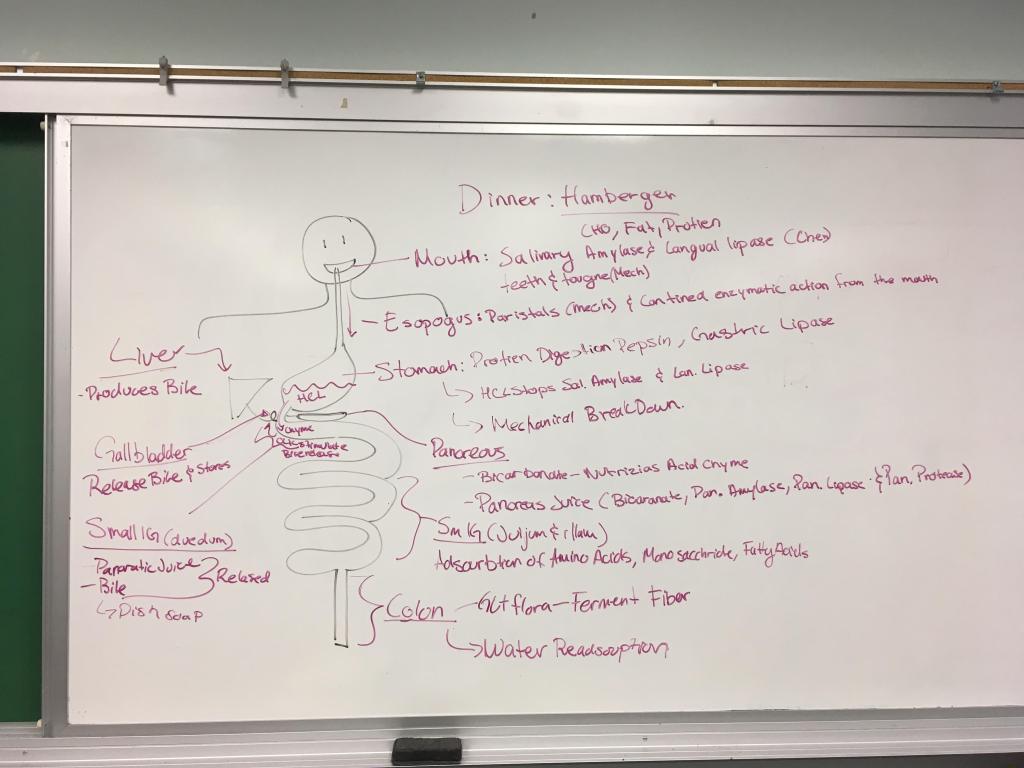 Dinner: Hamberger
CHO, Fat, Protien
Mouth: Salivary Amylase & Langual lipase (Che)
teeth & tougne (Mech)
Esopogus: Paristals (mech) & Contined enzymatic action from the mouth
Stomach: Protien Digestion Pepsin, Gastric Lipase
HCL Stops Sal. Amylase & Lan. Lipase
Mechanical BreakDown.
HCL
Liver
- Produces Bile
Chyme
CCK stimulate
Bile release
Gallbladder
Release Bile & Stores
Pancreous
- Bicarbonate - Nutrizias Acid Chyme
- Pancreas Juice (Bicaranate, Pan. Amylase, Pan. Lipase & Pan. Protease)
Small IG (duedum)
- Panpratic Juice
- Bile
Relased
Dish soap
Sm IG (Jujum & illium)
Adsourbtion of Amino Acids, Monosacchride, Fatty Acids
Colon - Gut flora - Ferment Fiber
Water Readsorption